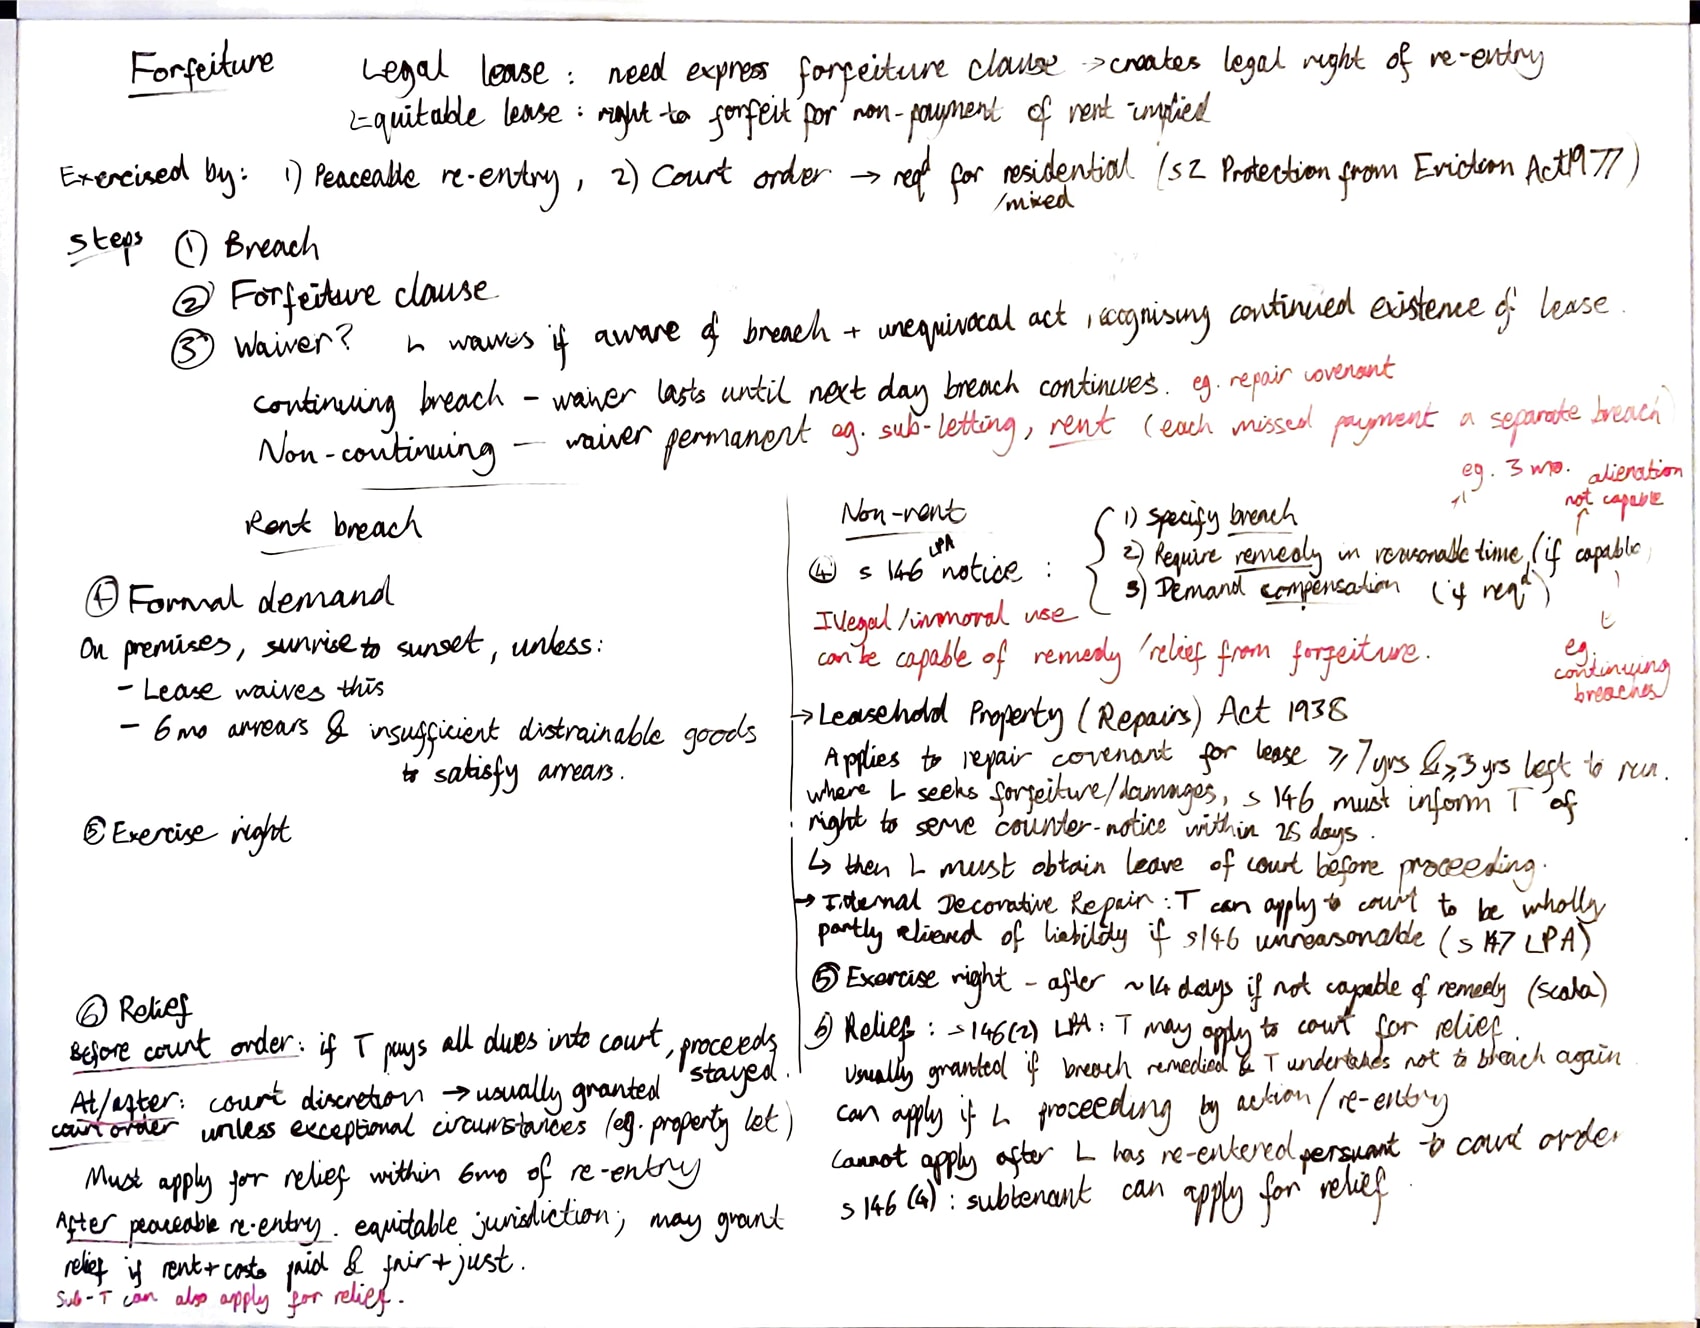 Forfeiture
Legal lease : need express forfeiture clause → creates legal right of re-entry
Equitable lease : right to forfeit for non-payment of rent implied
Exercised by: 1) Peaceable re-entry, 2) Court order → reqd for residential (s2 Protection from Eviction Act 1977)
/mixed
Steps ① Breach
② Forfeiture clause
③ Waiver? L waives if aware of breach + unequivocal act recognising continued existence of lease.
continuing breach - waiver lasts until next day breach continues. eg. repair covenant
Non-continuing - waiver permanent eg. sub-letting, rent (each missed payment a separate breach)
Rent breach
④ Formal demand
On premises, sunrise to sunset, unless:
- Lease waives this
- 6mo arrears & insufficient distrainable goods
to satisfy arrears.
⑤ Exercise right
⑥ Relief
Before court order: if T pays all dues into court, proceeds
stayed.
At/after: court discretion → usually granted
court order unless exceptional circumstances (eg. property let)
Must apply for relief within 6mo of re-entry
After peaceable re-entry. equitable jurisdiction; may grant
relief if rent+costs paid & fair+just.
Sub-T can also apply for relief.
Non-rent
eg. 3 mo. alienation
not capable
④ s 146 LPA notice :
1) Specify breach
2) Require remedy in reasonable time (if capable)
3) Demand compensation (if reqd)
eg.
continuing
breaches
Illegal/immoral use
can be capable of remedy/relief from forfeiture.
→ Leasehold Property (Repairs) Act 1938
Applies to repair covenant for lease ⩾ 7yrs & ⩾3 yrs left to run.
where L seeks forfeiture/damages, s 146 must inform T of
right to serve counter-notice within 28 days.
↳ then L must obtain leave of court before proceeding.
→ Internal Decorative Repair: T can apply to court to be wholly
partly relieved of liability if s146 unreasonable (s 147 LPA)
⑤ Exercise right - after ~14 days if not capable of remedy (Scala)
⑥ Relief : s146(2) LPA: T may apply to court for relief.
Usually granted if breach remedied & T undertakes not to breach again.
can apply if L proceeding by action/re-entry
Cannot apply after L has re-entered persuant to court order
s 146 (4) : subtenant can apply for relief.